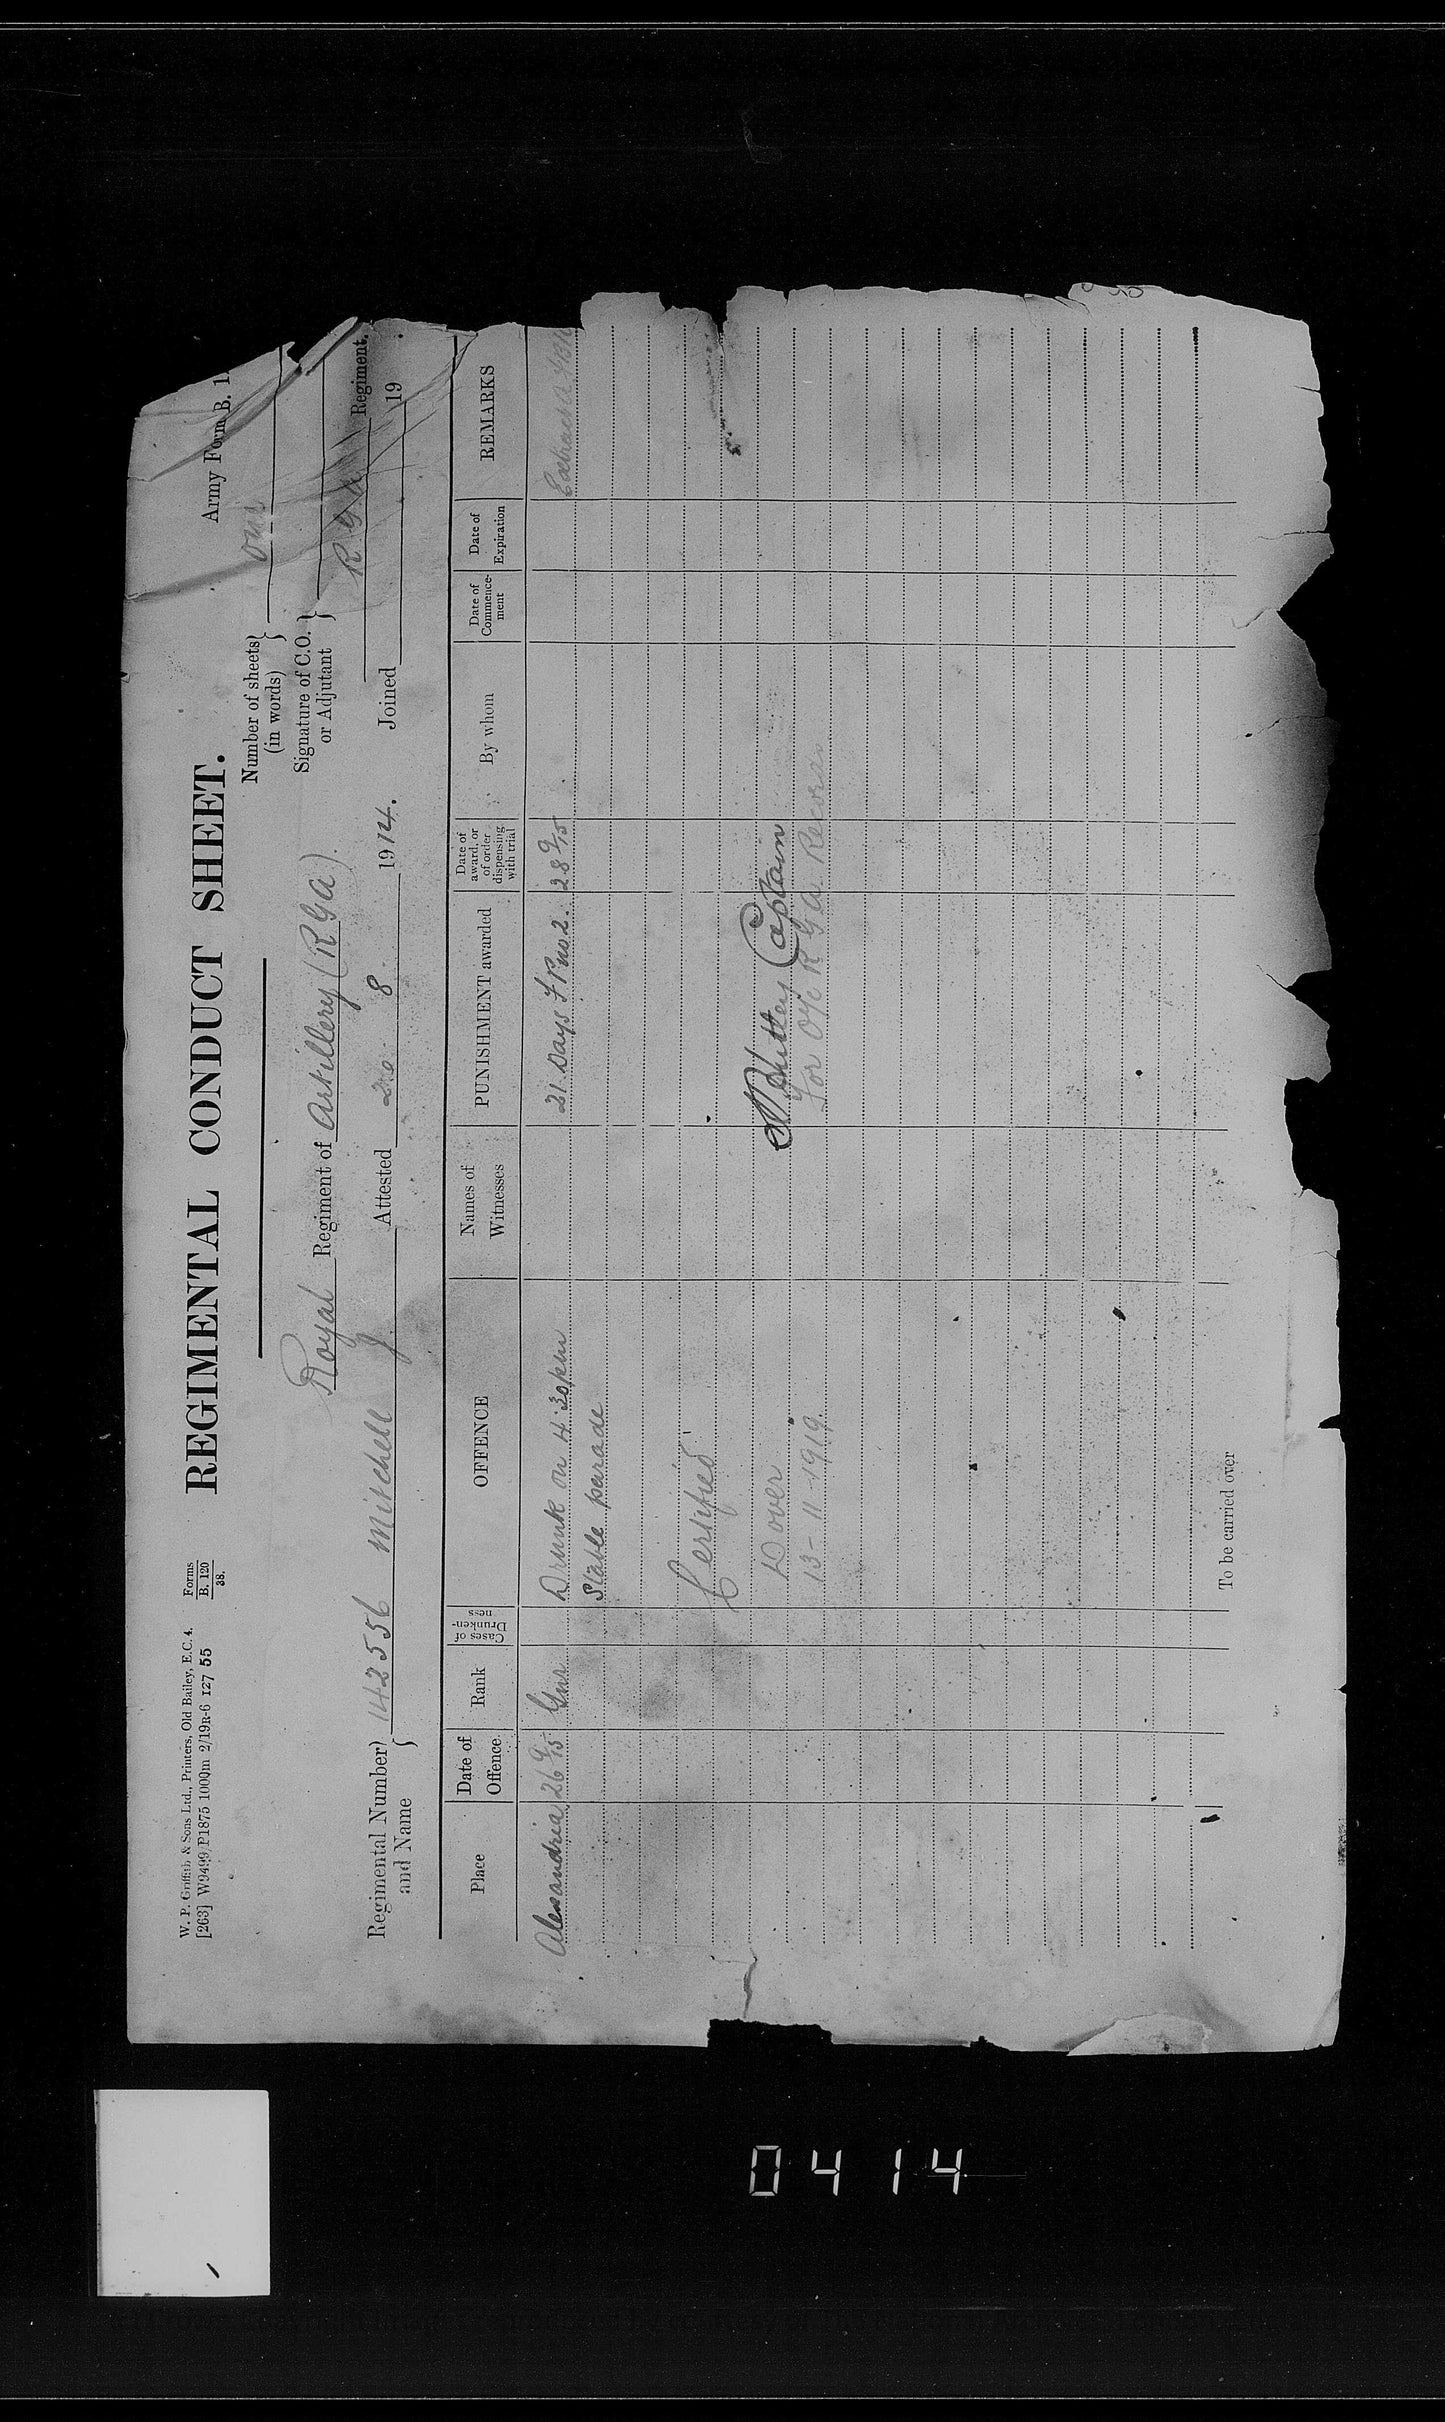 W. P. Griffith & Sons Ltd., Printers, Old Bailey, E.C. 4.
[263] W9499 P1875 1000m 2/19R-6 127 55
Forms
B. 120
38.
Army Form B. 1
REGIMENTAL CONDUCT SHEET.
Number of sheets
(in words) } one
Signature of C.O.
or Adjutant }
Royal Regiment of Artillery (RGA).
R G A Regiment.
Regimental Number
and Name } 142556 Mitchell J. Attested 8 1914. Joined 19
Place
Date of Offence
Rank
Cases of Drunken-ness
OFFENCE
Names of Witnesses
PUNISHMENT awarded
Date of award, or of order dispensing with trial
By whom
Date of Commence-ment
Date of Expiration
REMARKS
Alexandria 26 9/15 Gnr Drunk on 4.30pm 21 Days F P No 2. 28 9/15
Stable parade
Certified
Dover Captain
13-11-1919. For O/c R G A Records
To be carried over
0414